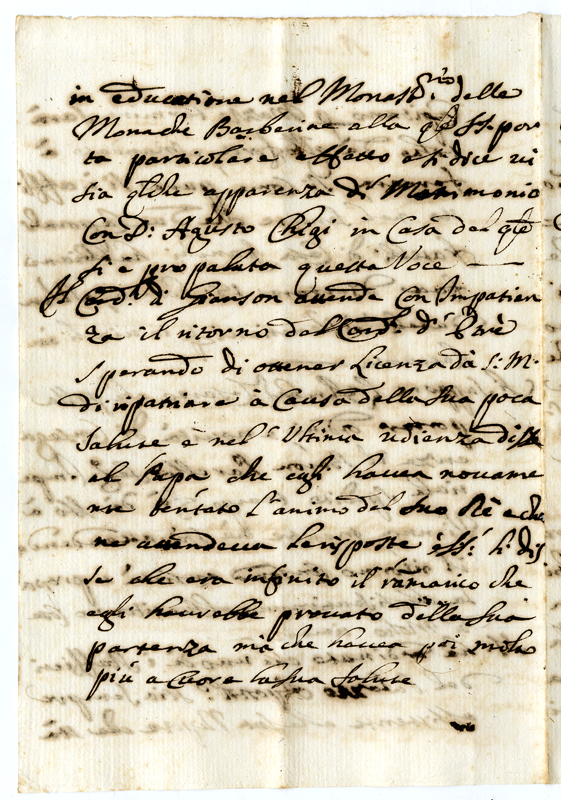 in educatione nel Monast.rio delle
Monache Barberine alla qle si por
ta particolare affetto e si dice vi
sia qlche apparenza di Matrimonio
Con D: Agusto Chigi in Casa del qle
si è propalata questa Voce —
Il Card.l di Gianson attende Con Impatien
za il ritorno del Card.l d'Etrè
sperando di ottener Licenza da S: M.
di ripatriare à Causa della sua poca
salute e nel'Ultima udienza disse
al Papa che egli havea novame
nte tentato l'animo del suo Rè e che
ne attendeva le risposte e si dis
se che era infinito il ramarico che
egli haverebbe provato della sua
partenza mà che havea poi molto
più a Cuore la sua salute